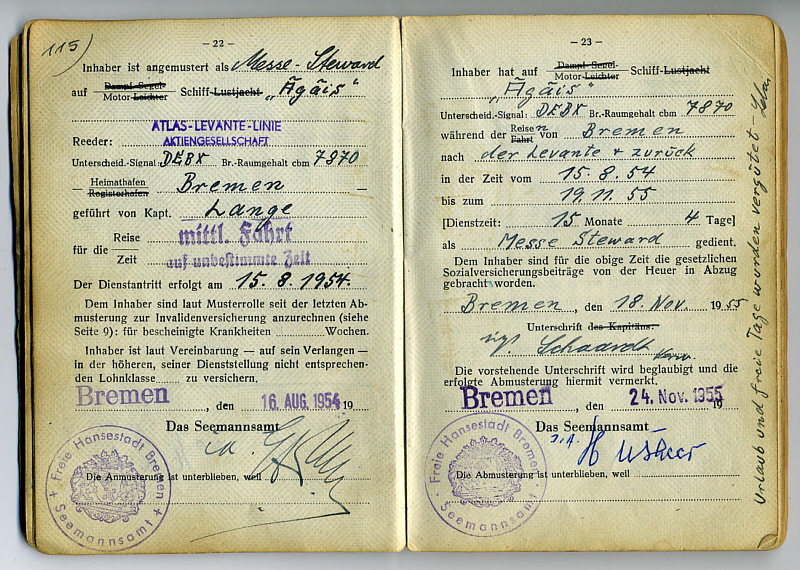 115)
– 22 –
Inhaber ist angemustert als Messe-Steward
auf Dampf-Segel- Motor-Leichter Schiff-Lustjacht „Ägäis"
ATLAS-LEVANTE-LINIE
Reeder: AKTIENGESELLSCHAFT
Unterscheid.-Signal DEBX Br.-Raumgehalt cbm 7870
Heimathafen
Registerhafen Bremen
geführt von Kapt. Lange
für die Reise Zeit mittl. Fahrt
auf unbestimmte Zeit
Der Dienstantritt erfolgt am 15. 8. 1954.
Dem Inhaber sind laut Musterrolle seit der letzten Ab-
musterung zur Invalidenversicherung anzurechnen (siehe
Seite 9): für bescheinigte Krankheiten Wochen.
Inhaber ist laut Vereinbarung — auf sein Verlangen —
in der höheren, seiner Dienststellung nicht entsprechen-
den Lohnklasse zu versichern.
Bremen, den 16. AUG. 1954 19
Das Seemannsamt
i.A.
Die Anmusterung ist unterblieben, weil
Freie Hansestadt Bremen + Seemannsamt +
– 23 –
Inhaber hat auf Dampf-Segel- Motor-Leichter Schiff-Lustjacht
„Ägäis"
Unterscheid.-Signal: DEBX Br.-Raumgehalt cbm 7870
während der Reise Fahrt von Bremen
nach der Levante + zurück
in der Zeit vom 15. 8. 54
bis zum 19. 11. 55
[Dienstzeit: 15 Monate 4 Tage]
als Messe Steward gedient.
Dem Inhaber sind für die obige Zeit die gesetzlichen
Sozialversicherungsbeiträge von der Heuer in Abzug
gebracht worden.
Bremen, den 18. Nov. 1955
Unterschrift des Kapitäns:
Die vorstehende Unterschrift wird beglaubigt und die
erfolgte Abmusterung hiermit vermerkt.
Bremen, den 24. Nov. 1955 19
Das Seemannsamt
i.A.
Die Abmusterung ist unterblieben, weil
Freie Hansestadt Bremen Seemannsamt
Urlaub und freie Tage wurden vergütet -